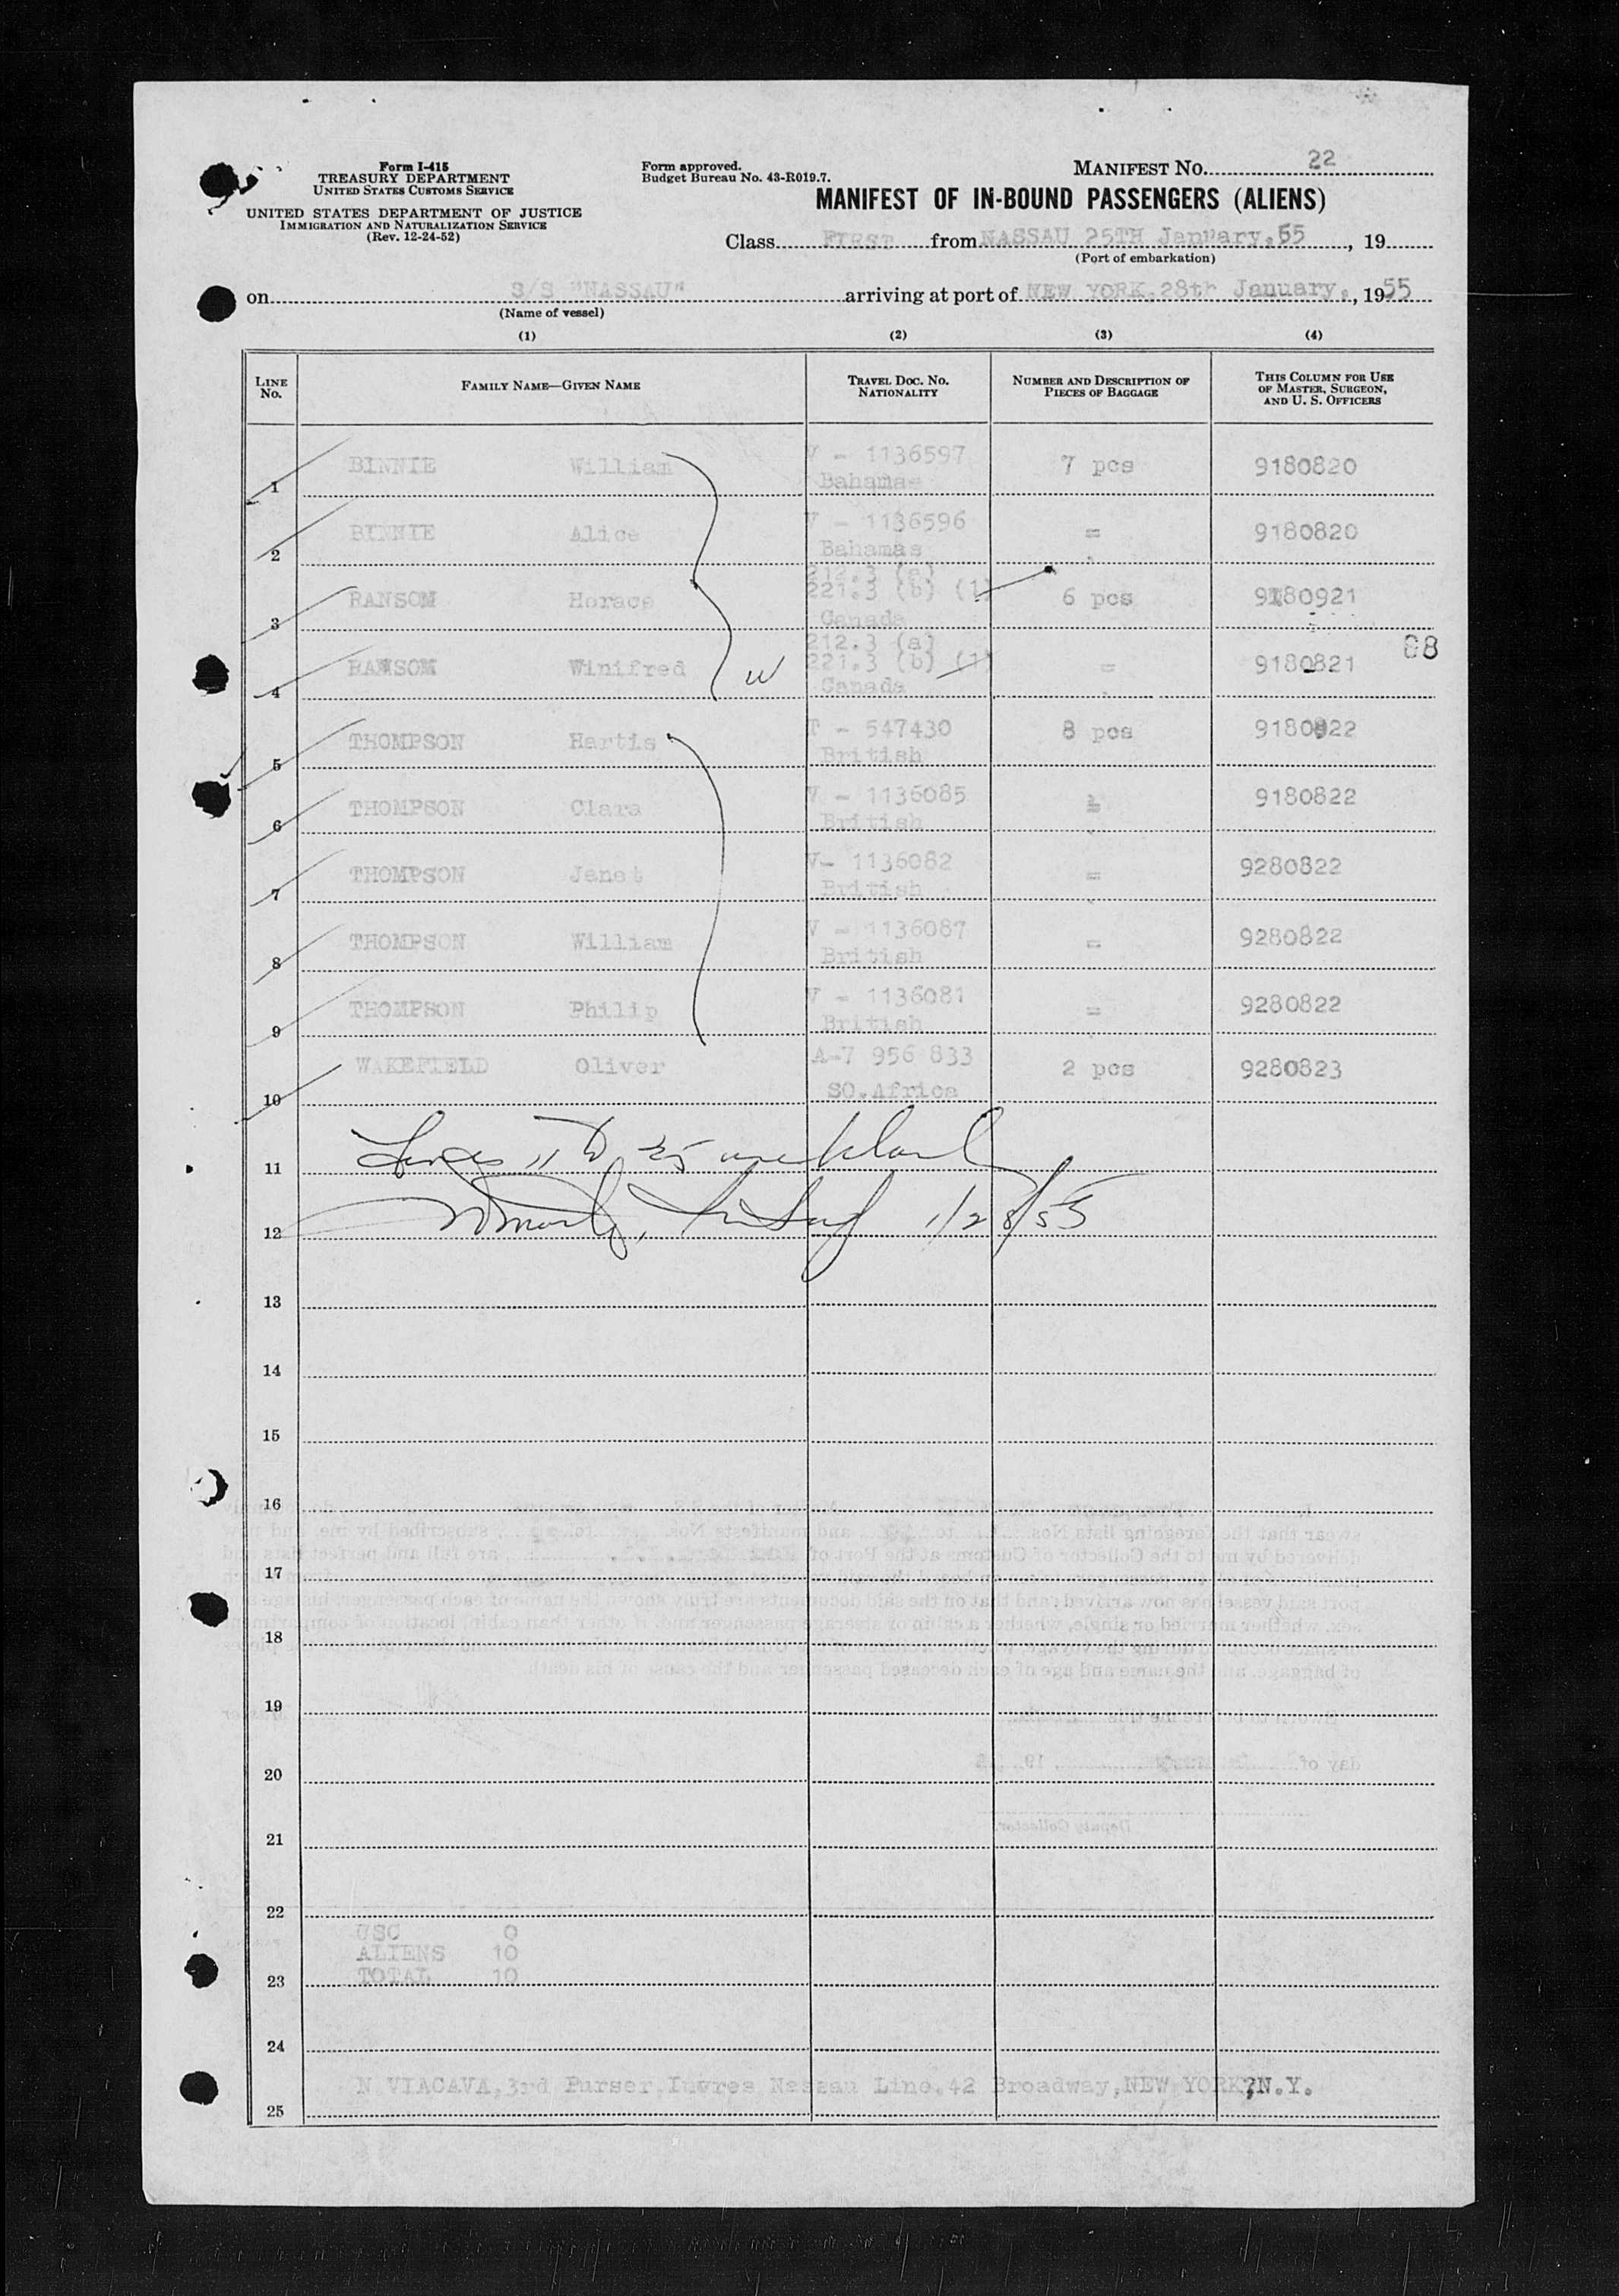 Form I-415
TREASURY DEPARTMENT
UNITED STATES CUSTOMS SERVICE
UNITED STATES DEPARTMENT OF JUSTICE
IMMIGRATION AND NATURALIZATION SERVICE
(Rev. 12-24-52)
Form approved.
Budget Bureau No. 43-R019.7.
MANIFEST NO. 22
MANIFEST OF IN-BOUND PASSENGERS (ALIENS)
Class FIRST from NASSAU 25TH January,55, 19
(Port of embarkation)
on S/S "NASSAU" arriving at port of NEW YORK,28th January, , 1955
(Name of vessel)
(1) (2) (3) (4)
LINE No. FAMILY NAME—GIVEN NAME TRAVEL DOC. NO. NATIONALITY NUMBER AND DESCRIPTION OF PIECES OF BAGGAGE THIS COLUMN FOR USE OF MASTER, SURGEON, AND U. S. OFFICERS
1 BINNIE William V - 1136597 Bahamas 7 pcs 9180820
2 BINNIE Alice V - 1136596 Bahamas = 9180820
3 RANSOM Horace 212.3 (a) 221.3 (b) (1) Canada 6 pcs 9180921
4 RANSOM Winifred W 212.3 (a) 221.3 (b) (1) Canada = 9180821
88
5 THOMPSON Hartis T - 547430 British 8 pcs 9180822
6 THOMPSON Clara V - 1136085 British = 9180822
7 THOMPSON Janet V- 1136082 British = 9280822
8 THOMPSON William V - 1136087 British = 9280822
9 THOMPSON Philip V - 1136081 British = 9280822
10 WAKEFIELD Oliver A-7 956 833 SO.Africa 2 pcs 9280823
11 Lines 11 to 25 are blank
12 1/28/55
13
14
15
16
17
18
19
20
21
22
USC 0
ALIENS 10
23 TOTAL 10
24
N VIACAVA,3rd Purser,Incres Nassau Line.42 Broadway,NEW YORK,N.Y.
25